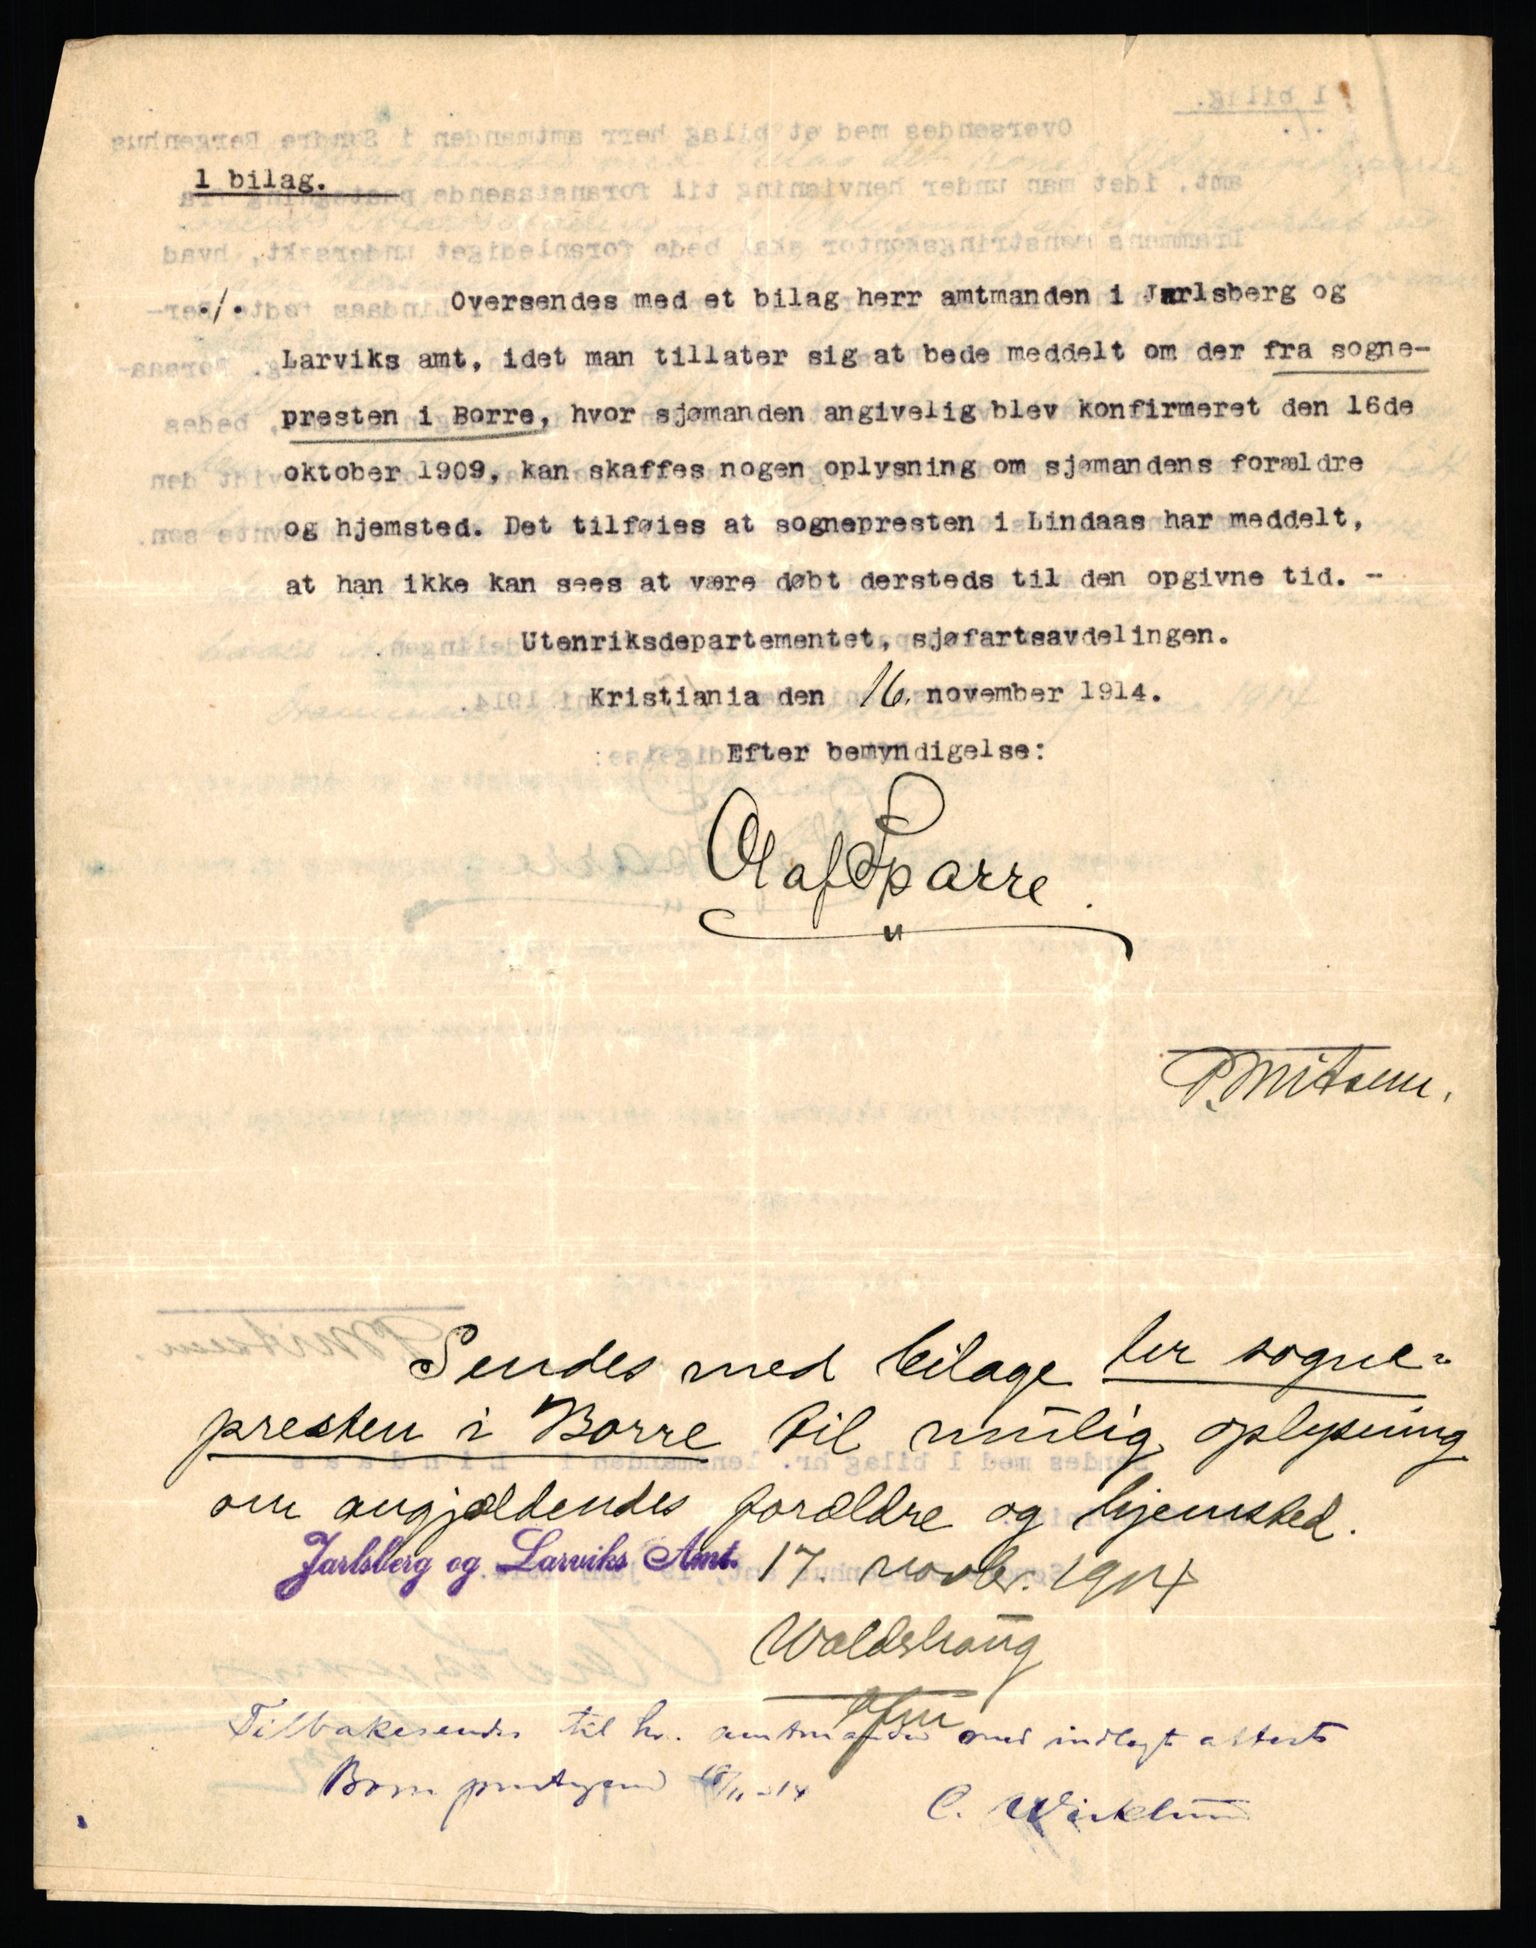 1 bilag.
./. Oversendes med et bilag herr amtmanden i Jarlsberg og
Larviks amt, idet man tillater sig at bede meddelt om der fra sogne-
presten i Borre, hvor sjømanden angivelig blev konfirmeret den 16de
oktober 1909, kan skaffes nogen oplysning om sjømandens forældre
og hjemsted. Det tilføies at sognepresten i Lindaas har meddelt,
at han ikke kan sees at være døbt dersteds til den opgivne tid. -
Utenriksdepartementet, sjøfartsavdelingen.
Kristiania den 16. november 1914.
Efter bemyndigelse:
Olaf Sparre.
Sendes med bilage her sogne-
presten i Borre til mulig oplysning
om angjældendes forældre og hjemsted.
Jarlsberg og Larviks Amt. 17. novbr. 1914
Tilbakesendes til hr. amtmanden med indlagt attest
Borre prestegaard 18/11-14